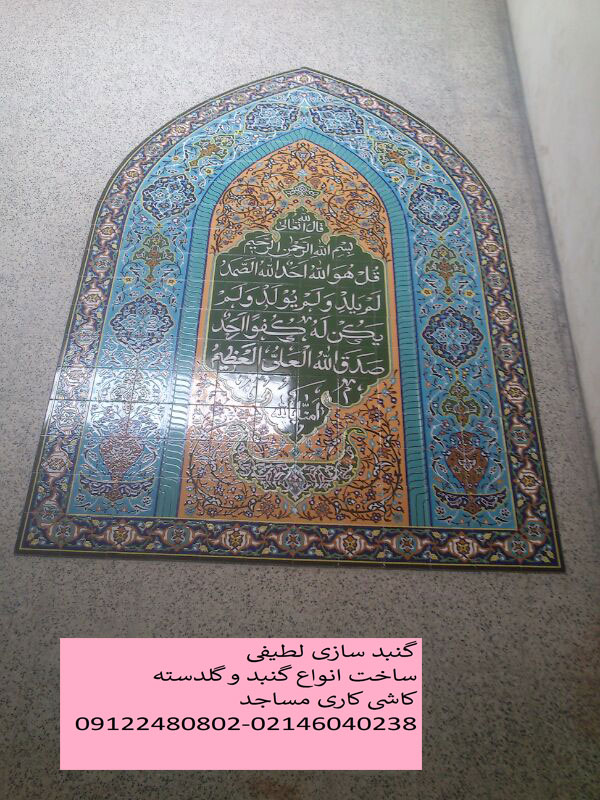 قال الله تعالى
بسم الله الرحمن الرحيم
قل هو الله احد الله الصمد
لم يلد ولم يولد ولم
يكن له كفوا احد
صدق الله العلى العظيم
گنبد سازی لطیفی
ساخت انواع گنبد و گلدسته
کاشی کاری مساجد
09122480802-02146040238